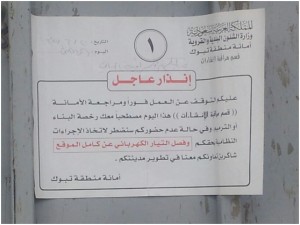 المملكة العربية السعودية
وزارة الشئون البلدية والقروية
أمانة منطقة تبوك
التاريخ
اليوم
١
إنذار عاجل
عليكم التوقف عن العمل فورا ومراجعة الأمانة
(( قسم مراقبة الإنشاءات )) هذا اليوم مصطحبا معك رخصة البناء
أو الترميم وفي حالة عدم حضوركم سنضطر لاتخاذ الاجراءات
النظامية بحقكم وفصل التيار الكهربائي عن كامل الموقع
شاكرين تعاونكم معنا في تطوير مدينتكم
أمانة منطقة تبوك